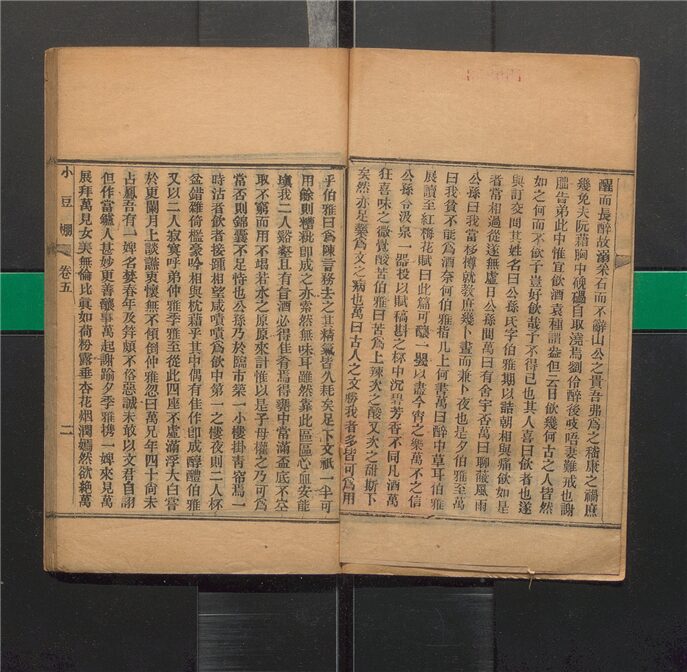 醒而長醉故溺采石而不辭山公之貴吾弗爲之嵇康之禍庶
幾免夫阮藉胸中傀儡自取澆焉劉伶醉後歧唔妻難戒也謝
醞告弟此中惟宜飲酒袁種謂盎但云日飲幾何古之人皆然
如之何而不飲予豈好飲哉予不得已也其人喜曰飲者也遂
與訂交問其姓名曰公孫氏字伯雅期以詰朝相與痛飲如是
者常相過從遂無虛日公孫問萬曰有舍宇否萬曰聊蔽風雨
公孫曰我當杉樽就教庶幾卜晝而兼卜夜也是夕伯雅至萬
曰我貧不能爲酒奈何伯雅指几上何書萬曰醉中草耳伯雅
展讀至紅梅花賦曰此篇可釀一甖以盡今宵之樂萬不之信
公孫令汲泉一器投以賦稿斟之杯中沉碧芳香不同凡酒萬
狂喜味之微覺酸苦伯雅曰苦爲上辣次之酸又次之甜斯下
矣然亦足彙爲文之病也萬曰古人之文勝我者多皆可爲用
乎伯雅曰爲陳言務去之其精氣皆久耗矣足下文祇一半可
用餘則糟粃卽成之亦索然無味耳雖然靠此區區心血安能
塡我二人谿壑且有旨酒必得佳肴焉得甕中常滿盃底不空
取不窮而用不竭若水之原原來計惟以是予母權之乃可爲
當否則錦囊不足恃也公孫乃於臨市築一小樓掛靑帘焉一
時沽者飲者接踵相望咸嘖嘖爲飲中第一之樓夜則二人杯
盆錯雜倚檻豪吟相與枕藉乎其中偶有佳作卽成醇醴伯雅
又以二人寂寞呼弟仲雅季雅至從此四座不虛滿浮大白嘗
於更闌月上談讌爽懷無不傾倒仲雅忽曰萬兄年四十尙未
占鳳吾有一婢名藝春年及笄頗不俗惡誠未敢以文君自詡
但作當壚人甚妙更善釀事萬起謝踰夕季雅携一婢來見萬
展拜萬見女美無倫比眞如荷粉露垂杏花烟潤嫣然欲絶萬
小豆棚　卷五　二